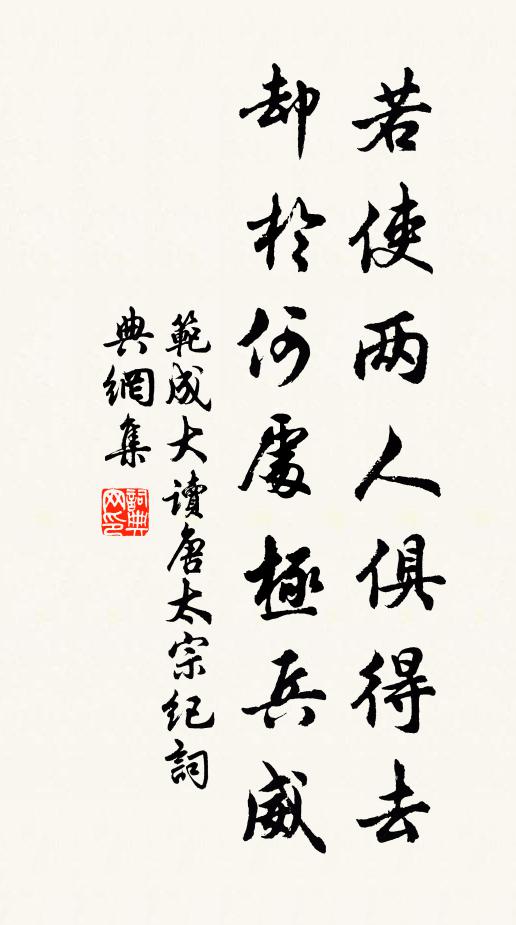 若使两人俱得去
却於何處極兵威
範成大讀唐太宗紀詞
典網集
詞典网印